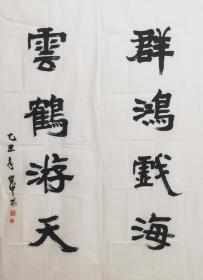 群鴻戲海
雲鶴游天
乙丑年